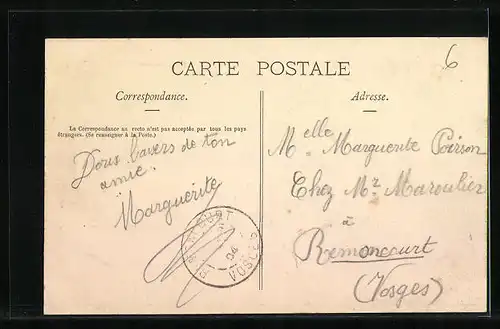 6
CARTE POSTALE
Correspondance.
Adresse.
La Correspondance au recto n'est pas acceptée par tous les pays
étrangers. (Se renseigner à la Poste.)
Doux baisers de ton
amie.
Marguerite
VOSGES
Melle Marguerite Poirson
Chez Mr
à
Remoncourt
(Vosges)